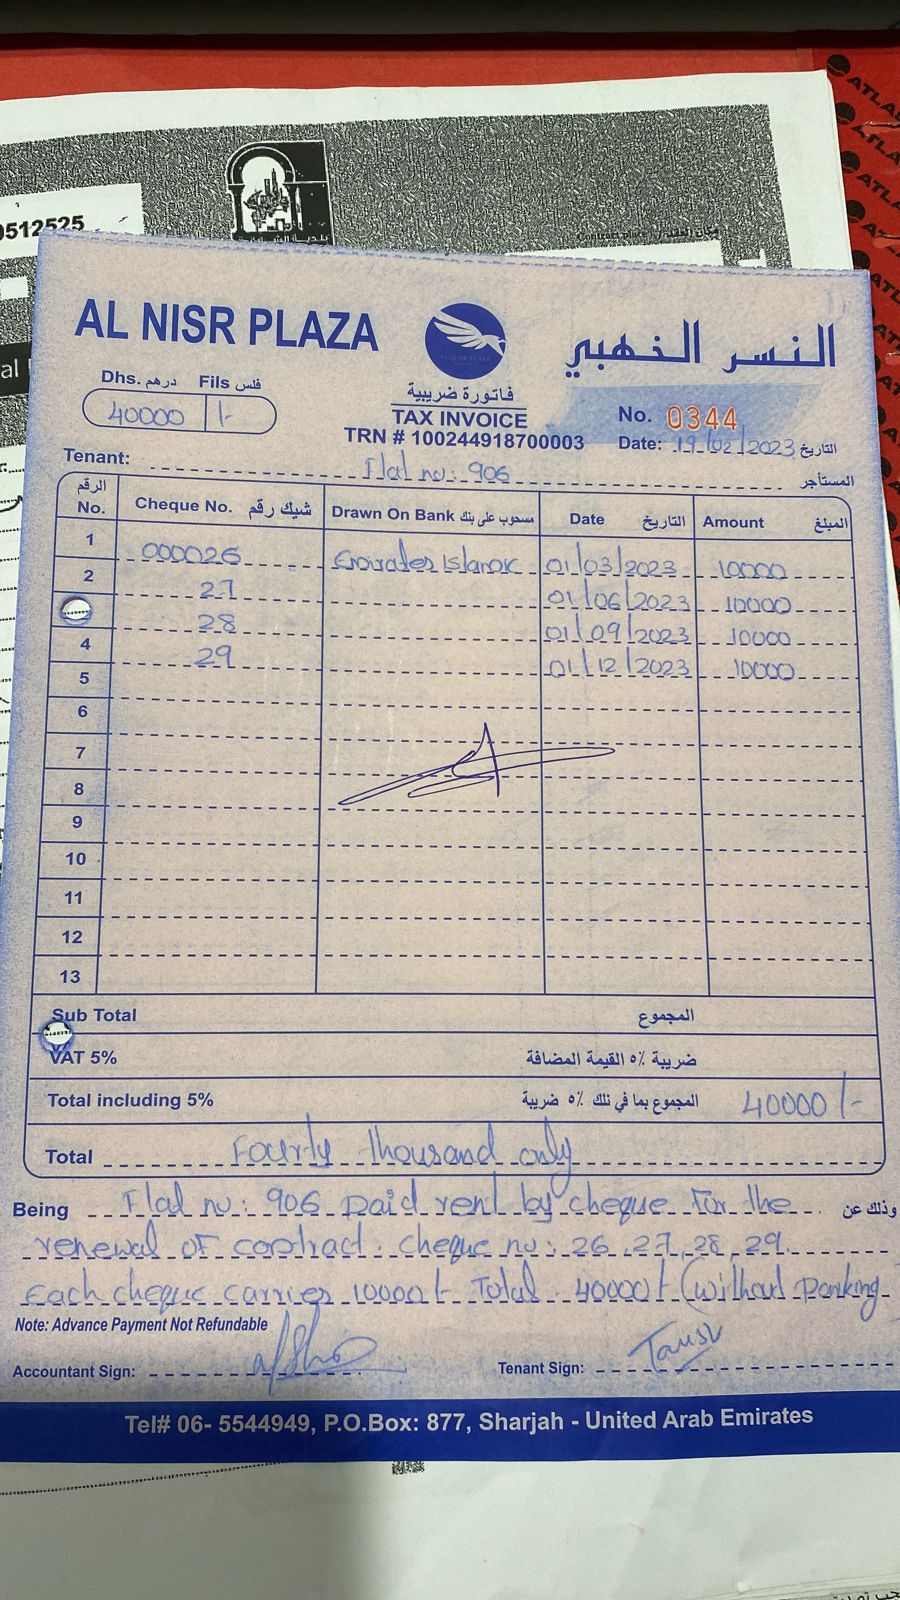 0512525
AL NISR PLAZA
AL NISR PLAZA
النسر الذهبي
Dhs. درهم Fils فلس
40000 /-
فاتورة ضريبية
TAX INVOICE
TRN # 100244918700003
No. 0344
Date: 19/02/2023 التاريخ
Tenant: Flat no: 906 المستأجر
الرقم No. Cheque No. شيك رقم Drawn On Bank مسحوب على بنك Date التاريخ Amount المبلغ
1 000026 Emirates Islamic 01/03/2023 10000
2 27 01/06/2023 10000
28 01/09/2023 10000
4 29 01/12/2023 10000
5
6
7
8
9
10
11
12
13
Sub Total المجموع
VAT 5% ضريبة ٥٪ القيمة المضافة
Total including 5% المجموع بما في تلك ٥٪ ضريبة 40000/-
Total Fourty thousand only
Being Flat no: 906 paid rent by cheque for the وذلك عن
renewal of contract. cheque no: 26, 27, 28, 29.
Each cheque carries 10000/- Total 40000/- (without Parking
Note: Advance Payment Not Refundable
Accountant Sign: Tenant Sign:
Tel# 06- 5544949, P.O.Box: 877, Sharjah - United Arab Emirates
ATLA
ATLA
ATLA